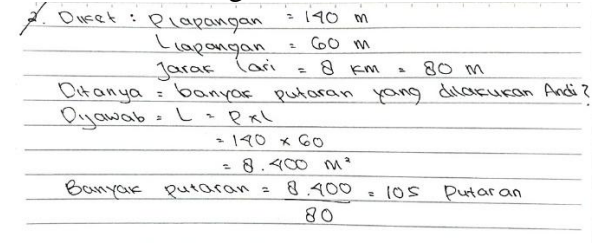 2. Diket : Plapangan = 140 m
Llapangan = 60 m
Jarak lari = 8 km = 80 m
Ditanya = banyak putaran yang dilakukan Andi?
Dijawab = L = P x l
= 140 x 60
= 8.400 m²
Banyak putaran = 8.400 = 105 putaran
80